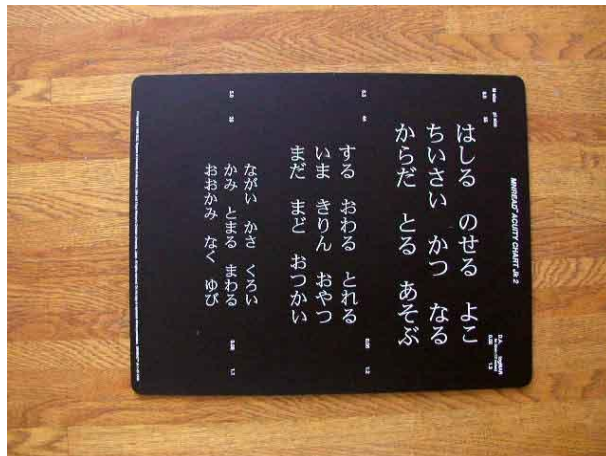 MNREAD ACUITY CHART Jk 2
はしる のせる よこ
ちいさい かつ なる
からだ とる あそぶ
する おわる とれる
いま きりん おやつ
まだ まど おつかい
ながい かさ くろい
かみ とまる まわる
おおかみ なく ゆび